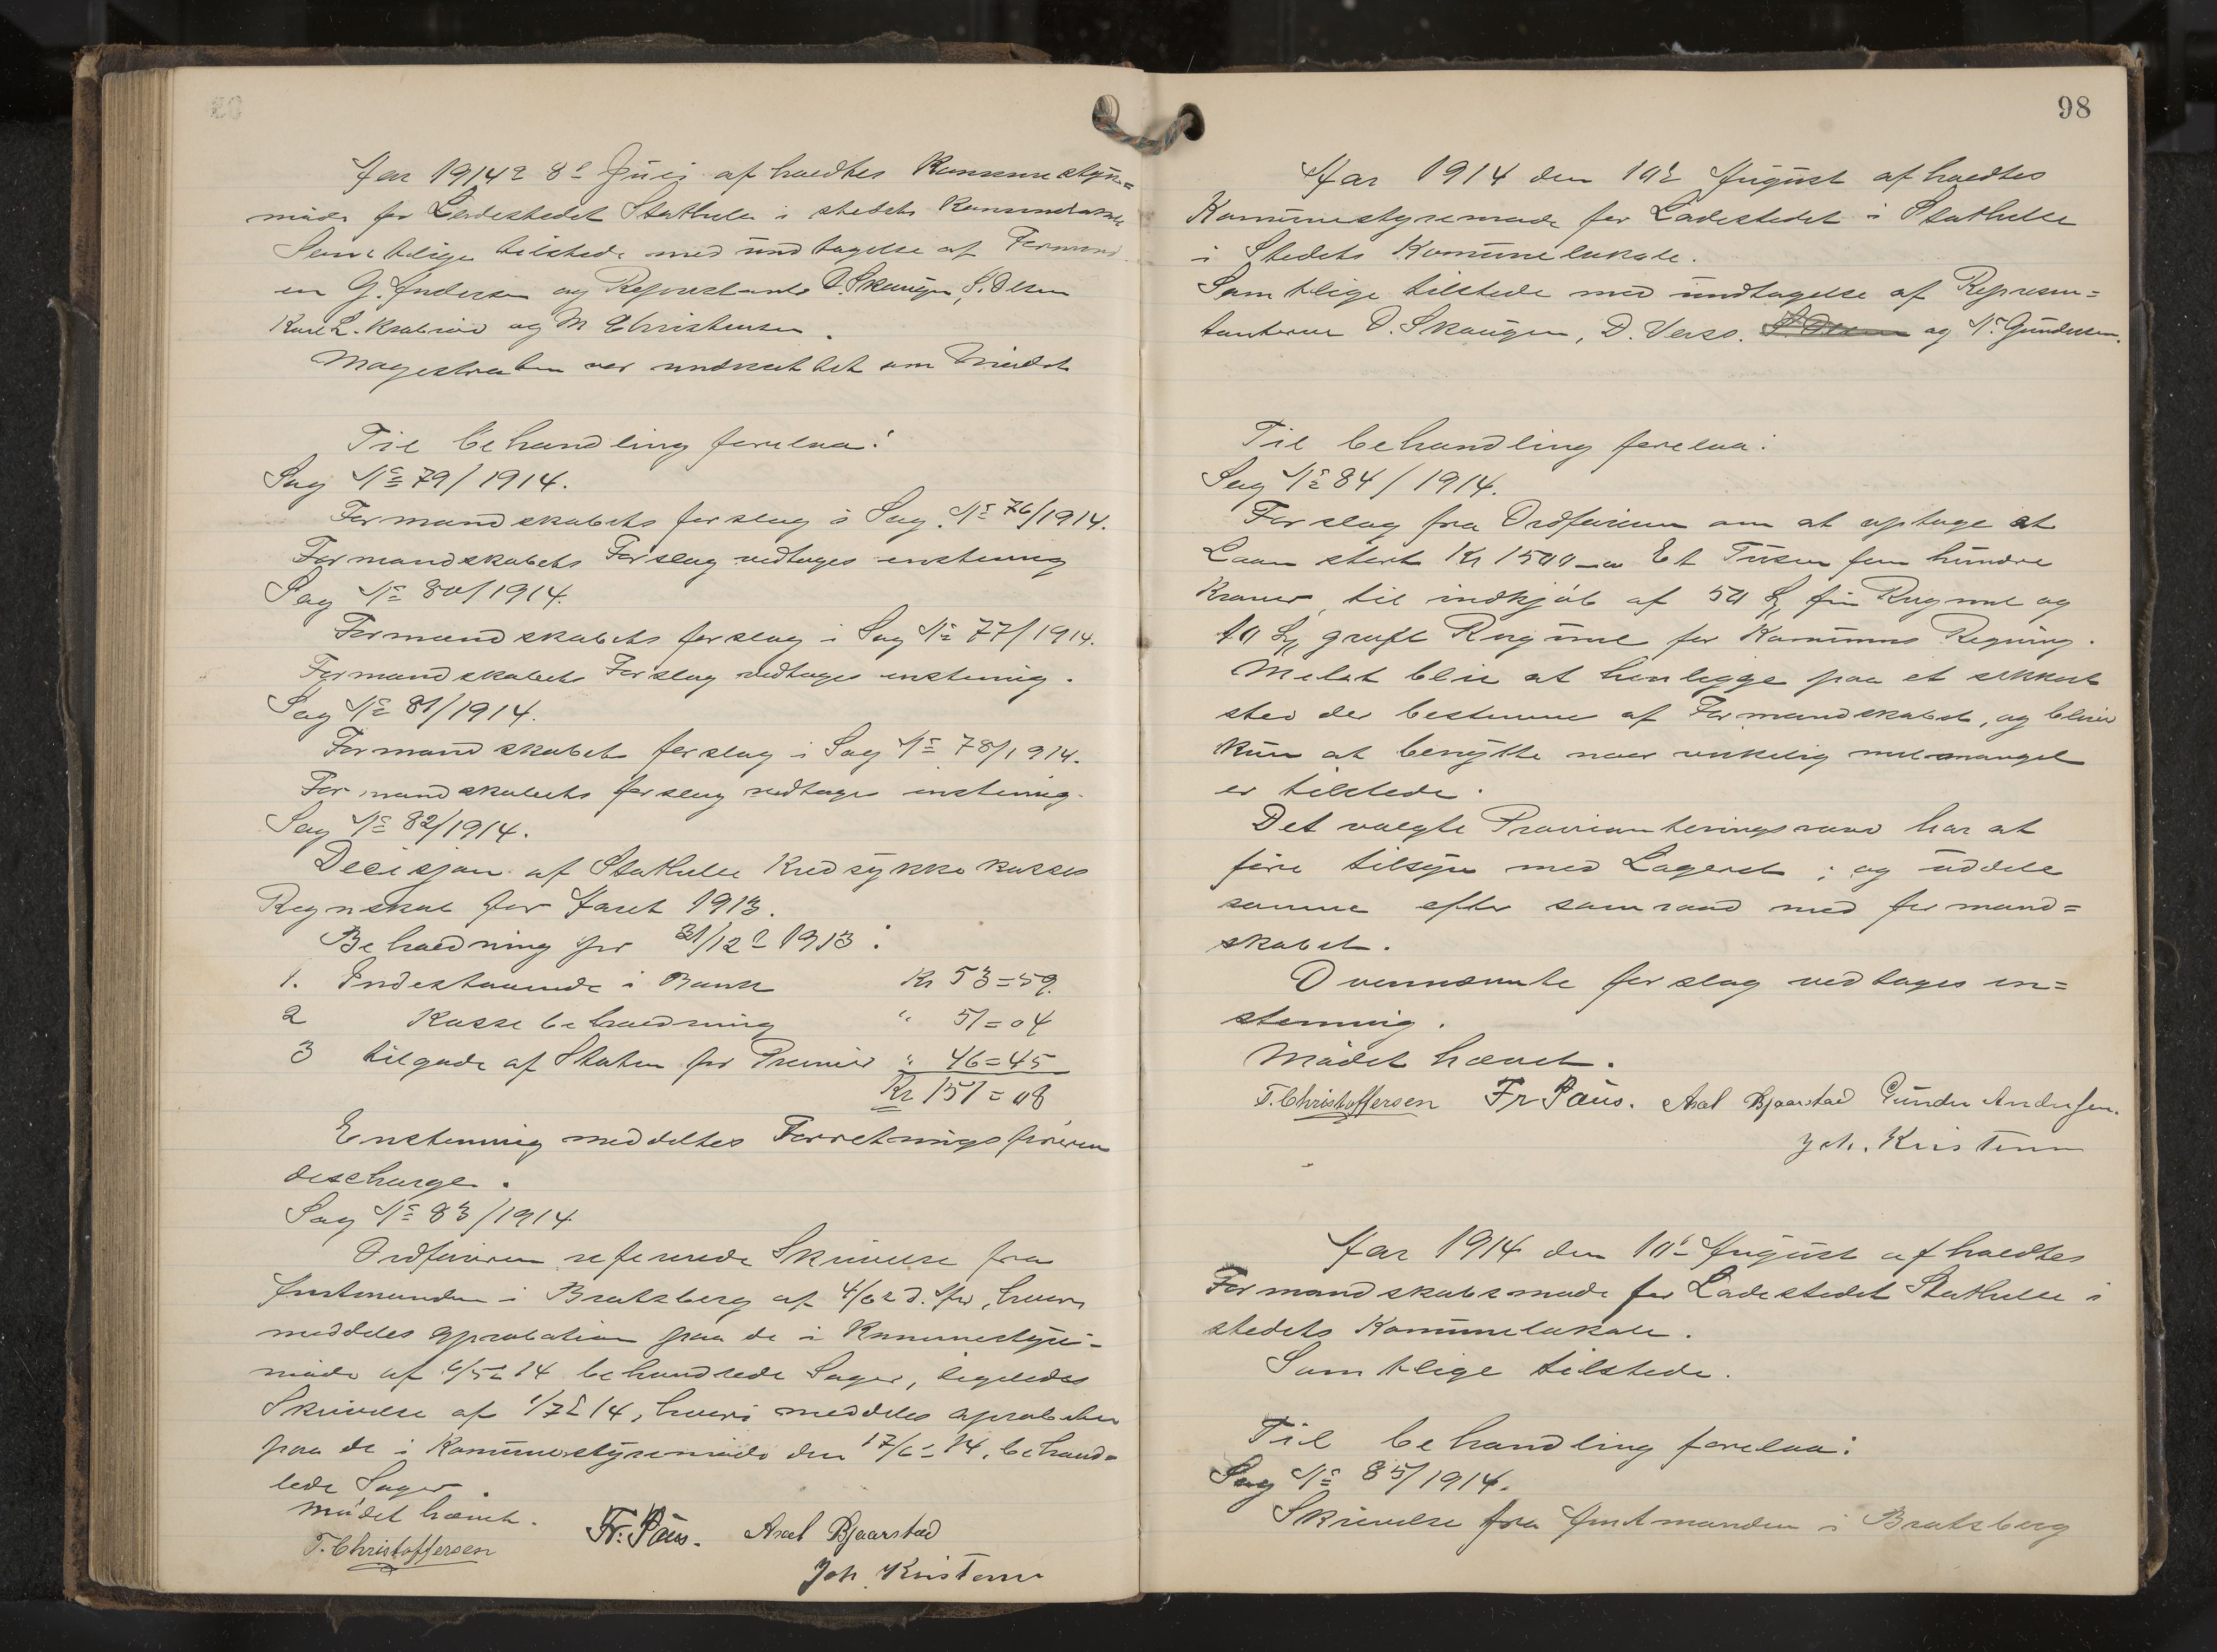 Aar 1914 d 8de Juli afholdtes Kommunestyre=
møde for Ladestedet Stathelle i stedets Kommunelokale
Samtlige tilstede med undtagelse af Formand
en G. Andersen og Repræsentanter O. Skaugen, S. Olsen
Karl L. Krabrød og M Christensen.
Magestraten var underrettet om Mødet
Til behandling forelaa:
Sag No 79/1914.
Formandskabets forslag i Sag. No 76/1914.
Formandskabets Forslag vedtages enstemig
Sag No 80/1914.
Formandskabets forslag i Sag No 77/1914.
Formandskabets Forslag vedtages enstemig.
Sag No 81/1914.
Formandskabets forslag i Sag No 78/1914.
Formandskabets forslag vedtages enstemig.
Sag No 82/1914.
Decisjon af Stathelle Kredsykekasses
Regnskab for Aaret 1913.
Beholdning pr 31/12 1913:
1. Indestaaende i Bank Kr 53=59.
2 Kassebeholdning " 51=04
3 tilgode af Staten for Premier " 46=45
Kr 151=08
Enstemig meddeltes Forretningsføreren
descharge.
Sag No 83/1914
Ordføreren refererede Skrivelse fra
Amtmanden i Bratsberg af 4/6 d. Aar, hvori
meddeles aprobation paa de i Kommunestyre-
møde af 6/5 14 behandlede Sager, ligeledes
Skrivelse af 1/7 14, hvori meddeles aprobation
paa de i Kommunestyremøde den 17/6 14. behand=
lede Sager.
Mødet hævet.
T. Christoffersen Fr. Paus. Axel Bjaarstad
Joh. Kristensen
98
Aar 1914 den 10de August afholdtes
Kommunestyremøde for Ladestedet i Stathelle
i Stedets Kommunelokale.
Samtlige tilstede med undtagelse af Repræsen=
tanterne O. Skaugen, D. Weiss. S. Olsen og N. Gundersen.
Til behandling forelaa:
Sag No 84/1914.
Forslag fra Ordføreren om at optage et
Laan stort Kr 1500 - Et Tusen fem hundre
Kroner, til indkjøb af 50 Sk, fin Rugmel og
10 Sk, groft Rugmel for Kommunens Regning.
Melet blir at henlegge paa et sikkert
sted der bestemmes af Formandskabet, og bliver
kun at benytte naar virkelig melmangel
er tilstede.
Det valgte Provianteringsraad har at
føre tilsyn med Lageret; og uddele
samme efter samraad med formand=
skabet.
Ovennævnte forslag vedtages en=
stemmig.
Mødet hævet.
T. Christoffersen Fr Paus. Axel Bjaarstad Gunder Andersen.
Joh. Kristensen
Aar 1914 den 10de August afholdtes
Formandskabsmøde for Ladestedet Stathelle i
stedets Kommunelokale.
Samtlige tilstede.
Til behandling forelaa:
Sag No 85/1914.
Skrivelse fra Amtmanden i Bratsberg